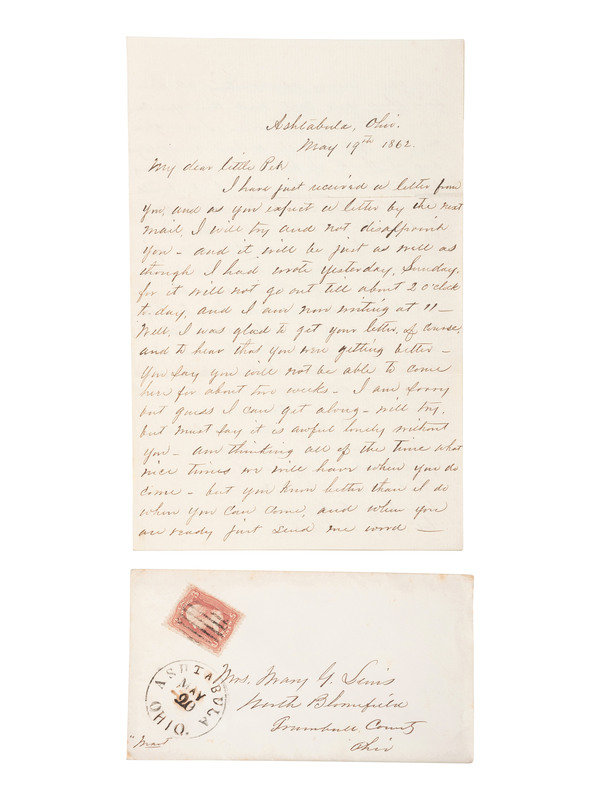 Ashtabula, Ohio.
May 19th 1862.
My dear little Pet
I have just received a letter from
you, and as you expect a letter by the next
mail I will try and not disappoint
you - and it will be just as well as
though I had wrote yesterday, Sunday,
for it will not go out till about 2 o'clock
to-day, and I am now writing at 11 -
Well, I was glad to get your letter, of course,
and to hear that you were getting better -
You say you will not be able to come
here for about two weeks - I am sorry
but guess I can get along - will try,
but must say it is awful lonely without
you - am thinking all of the time what
nice times we will have when you do
come - but you know better than I do
when you can come, and when you
are ready just send me word -
ASHTABULA OHIO
MAY
20
Mrs. Mary G.
North Bloomfield
Trumbull County
Ohio